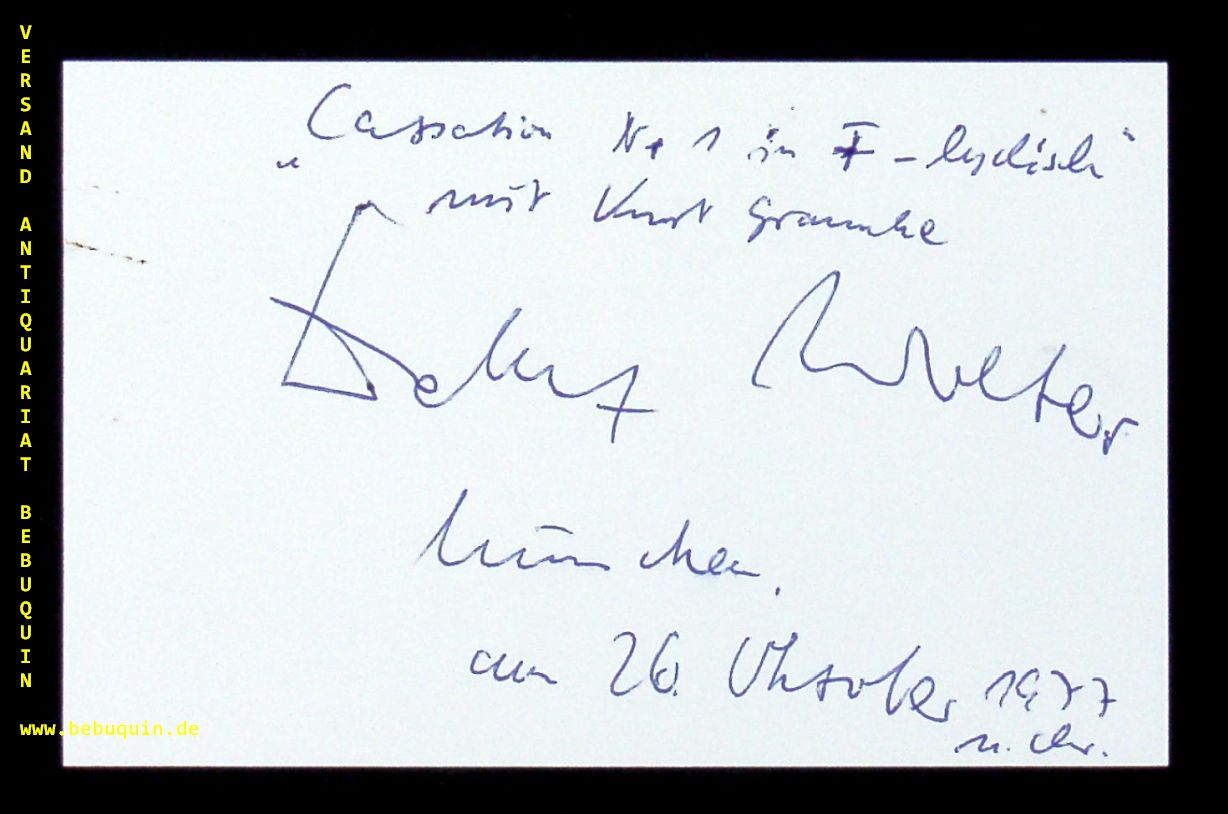 VERSAND ANTIQUARIAT BEBUQUIN
www.bebuquin.de
„Cassation Nr 1 in F-lydisch“
mit Kurt
Detlef Wolter
München,
am 26. Oktober 1977
n. Chr.